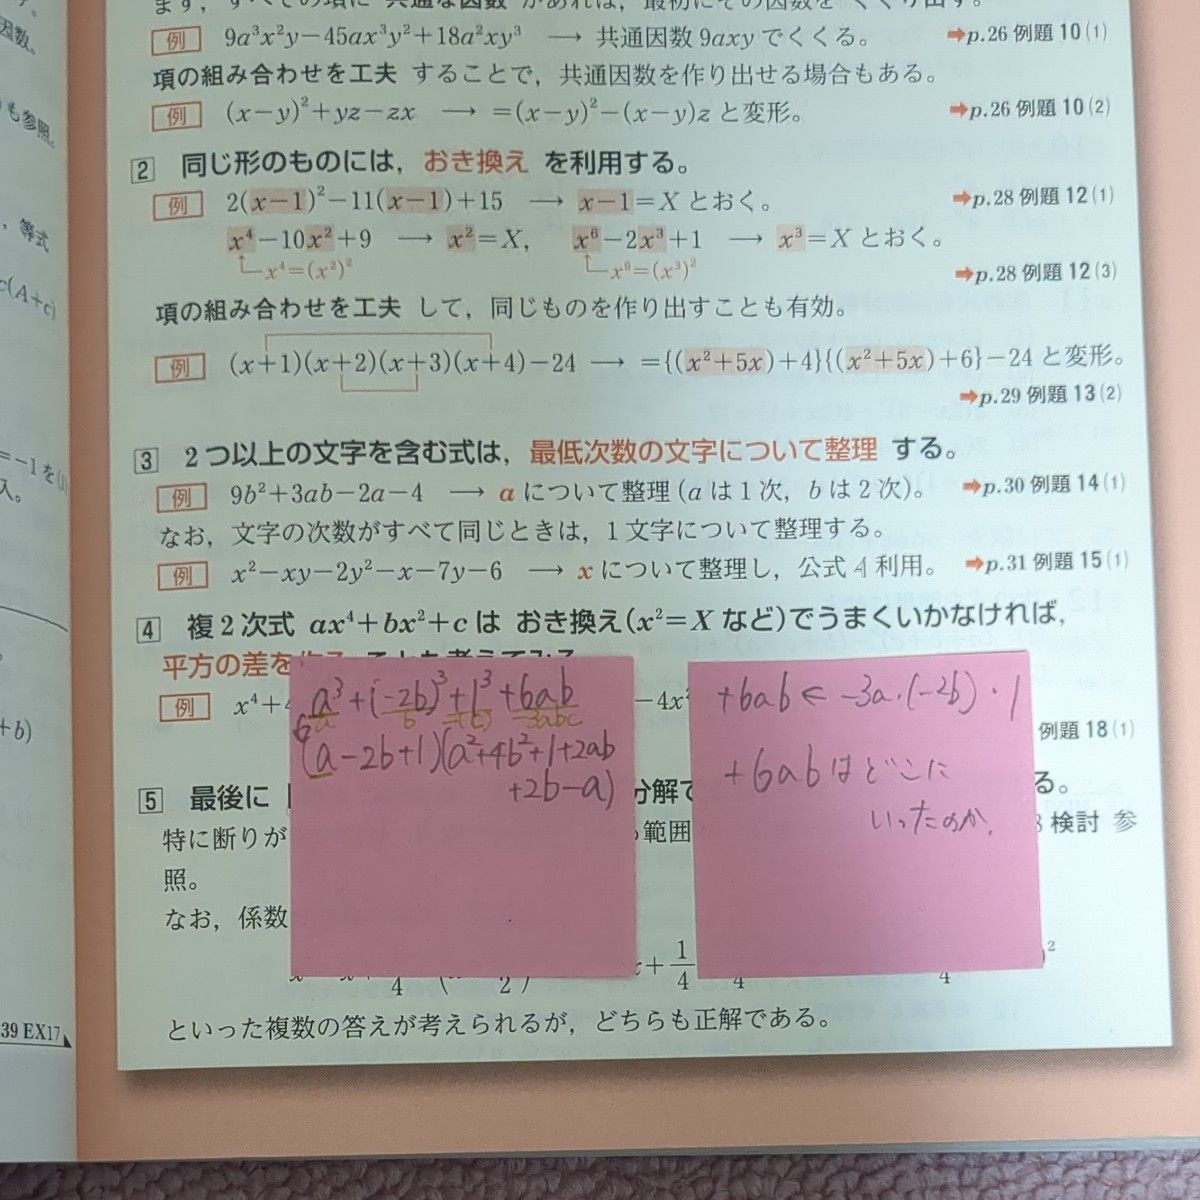 因数。
も参照。
，等式
c(A+c)
=−1を(1)
入。
+b)
39 EX17
ます，すべての項に 共通な因数 があれば，最初にその因数を くくり出す。
例 9a³x²y−45ax³y²+18a²xy³ → 共通因数 9axy でくくる。 ➡p.26 例題 10(1)
項の組み合わせを工夫 することで，共通因数を作り出せる場合もある。
例 (x−y)²+yz−zx → =(x−y)²−(x−y)z と変形。 ➡p.26 例題 10(2)
2 同じ形のものには，おき換え を利用する。
例 2(x−1)²−11(x−1)+15 → x−1=X とおく。 ➡p.28 例題 12(1)
x⁴−10x²+9 → x²=X, x⁶−2x³+1 → x³=X とおく。
x⁴=(x²)² x⁶=(x³)²
➡p.28 例題 12(3)
項の組み合わせを工夫 して，同じものを作り出すことも有効。
例 (x+1)(x+2)(x+3)(x+4)−24 → ={(x²+5x)+4}{(x²+5x)+6}−24 と変形。
➡p.29 例題 13(2)
3 2つ以上の文字を含む式は，最低次数の文字について整理 する。
例 9b²+3ab−2a−4 → a について整理(a は1次，b は2次)。 ➡p.30 例題 14(1)
なお，文字の次数がすべて同じときは，1文字について整理する。
例 x²−xy−2y²−x−7y−6 → x について整理し，公式 4 利用。 ➡p.31 例題 15(1)
4 複2次式 ax⁴+bx²+c は おき換え(x²=X など)でうまくいかなければ，
平方の差を
例 x⁴+4 −4x² 例題 18(1)
a³+(−2b)³+1³+6ab
a b =(c) −3abc
(a−2b+1)(a²+4b²+1+2ab
+2b−a)
+6ab ← −3a·(−2b)·1
+6abはどこに
いったのか、
5 最後に 分解 る。
特に断りが 範囲 検討 参
照。
なお，係数
といった複数の答えが考えられるが，どちらも正解である。